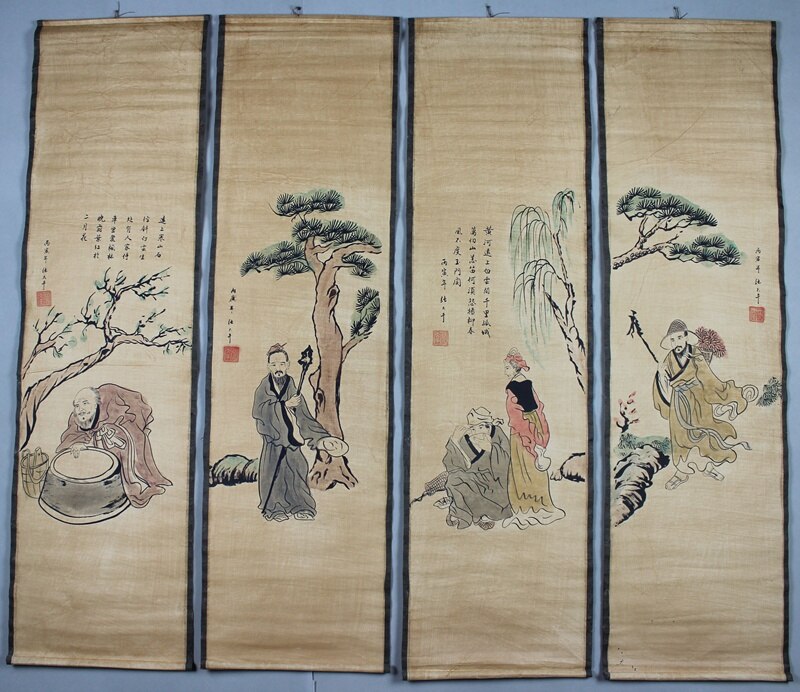 遠上寒山石
徑斜白雲生
處有人家停
車坐愛楓林
晚霜葉紅於
二月花
丙寅年 張大千
丙寅年 張大千
黃河遠上白雲間千里孤城
萬仞山羌笛何須怨楊柳春
風不度玉門關
丙寅年 張大千
丙寅年 張大千